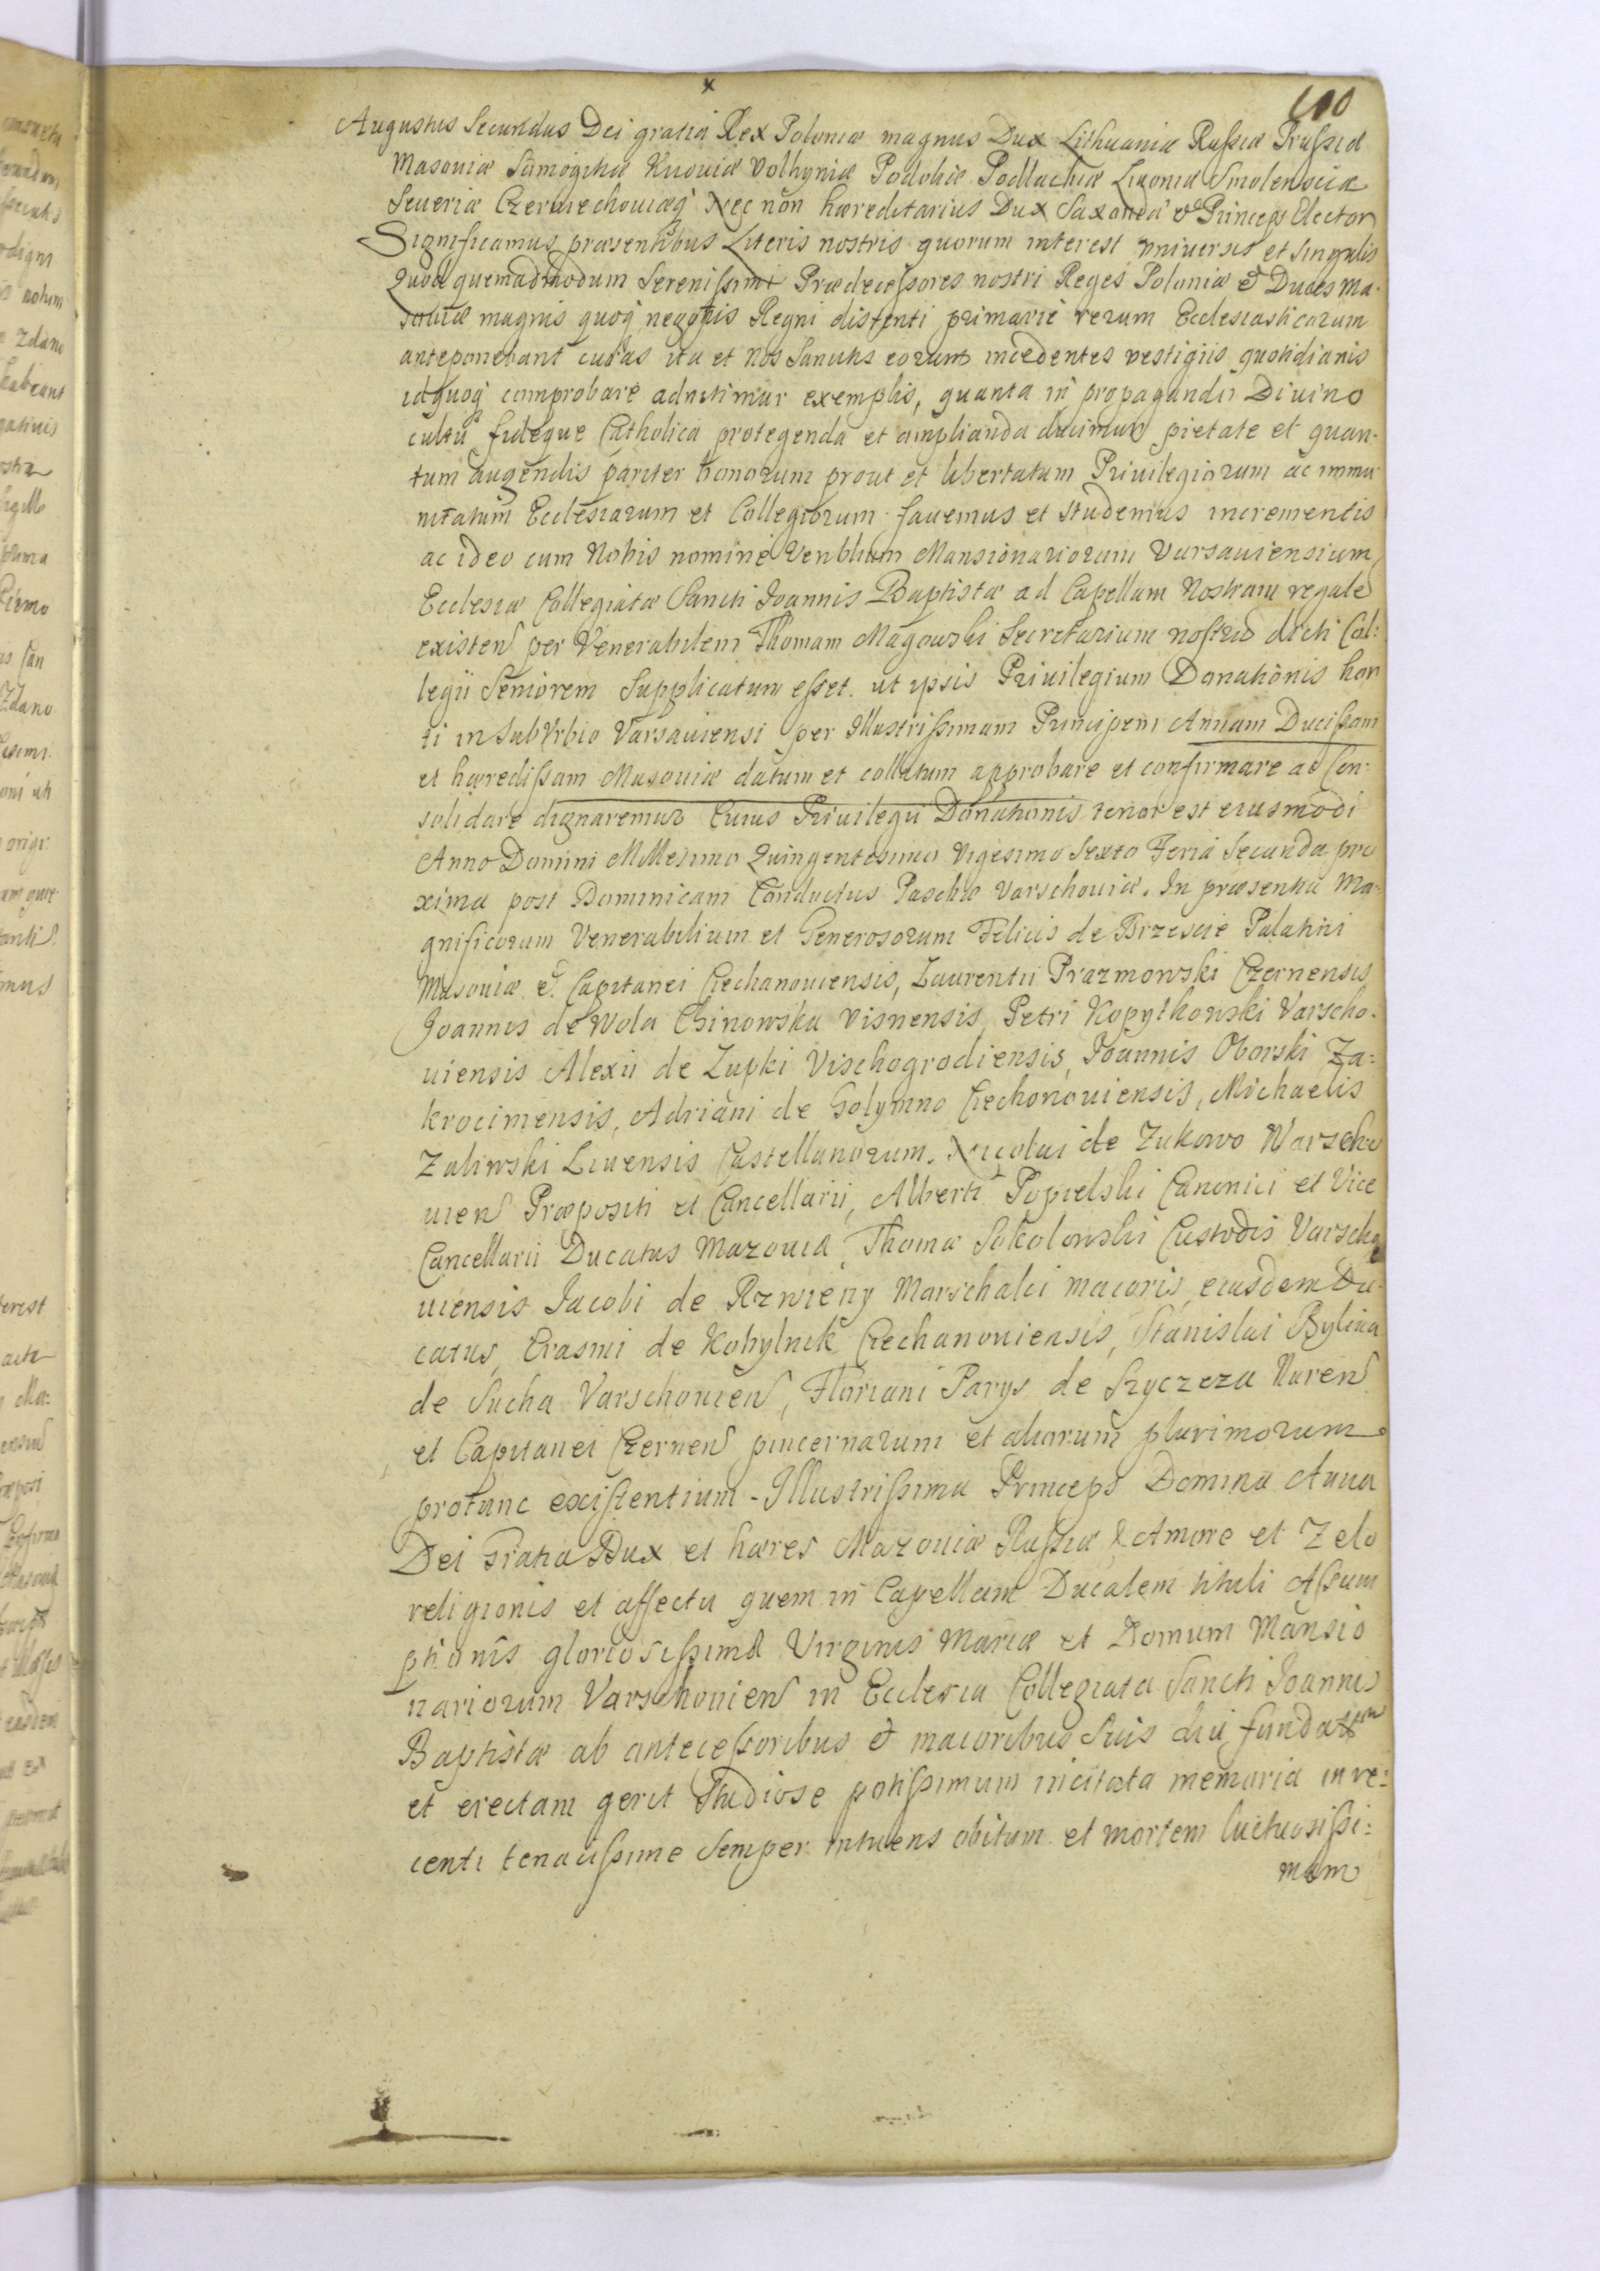 x
100
Augustus Secundus Dei gratia Rex Poloniæ magnus Dux Lithuaniæ Russiæ Prussiæ
Masoviæ Samogitiæ Kijoviæ Volhyniæ Podoliæ Podlachiæ Livoniæ Smolensciæ
Severiæ Czerniechoviæq Nec non hæreditarius Dux Saxoniæ & Princeps Elector
Significamus præsentibus Literis nostris quorum interest universis et singulis
Quod quemadmodum Serenissimi Prædecessores nostri Reges Poloniæ & Duces Ma-
soviæ magnis quoq negotiis Regni distenti primariè rerum Ecclesiasticarum
anteponebant curas ita et Nos Sanctis eorum incedentes vestigiis quotidianis
idquoq comprobare adnitimur exemplis, quanta in propagando Divino
cultu fideque Catholica protegenda et amplianda ducimur pietate et quan-
tum augendis pariter bonorum prout et libertatum Privilegiorum ac immu
nitatum Ecclesiarum et Collegiorum favemus et studemus incrementis
ac ideo cum Nobis nomine Venblium Mansionariorum Varsaviensium,
Ecclesiæ Collegiatæ Sancti Joannis Baptistæ ad Capellam Nostram regale
existen per Venerabilem Thomam Magowski Secretarium nostru dicti Col:
legii Seniorem Supplicatum esset. ut ipsis Privilegium Donationis hor
ti in SubUrbio Varsaviensi per Illustrissimam Principem Annam Ducissam
et hæredissam Masoviæ datum et collatum approbare et confirmare ac Con-
solidare dignaremur Cuius Privilegii Donationis tenor est eiusmodi
Anno Domini Millesimo Quingentesimo Vigesimo Sexto Feria Secunda pro
xima post Dominicam Conductus Paschæ Varschoviæ. In præsentia Ma-
gnificorum Venerabilium et Generosorum Felicis de Brzescie Palatini
Masoviæ & Capitanei Ciechanoviensis, Laurentii Prazmowski Czernensis
Joannis de Wola Chinowska Visnensis Petri Kopythowski Varscho-
viensis Alexii de Zupki Vischogrodiensis, Joannis Oborski Za=
krocimensis, Adriani de Golymno Ciechonoviensis, Michaelis
Zaliwski Livensis Castellanorum. Nicolai de Zukowo Warscho
vien Præpositi et Cancellarii, Alberti Popielski Canonici et Vice
Cancellarii Ducatus Mazoviæ, Thomæ Sokolowski Custodis Varscho
viensis Jacobi de Rzwieny Marschalci maioris eiusdem Du-
catus, Erasmi de Kobylnik Ciechanoviensis, Stanislai Bylina
de Sucha Varschovien, Floriani Parys de Szyczeza Nuren
et Capitanei Czernen pincernarum et aliorum plurimorum
protunc existentium - Illustrissima Princeps Domina Anna
Dei Gratia Dux et hæres Mazoviæ Russiæ & Amore et Zelo
religionis et affectu quem in Capellam Ducalem tituli Assum
ptionis gloriosissimæ Virginis Mariæ et Domum Mansio
nariorum Varschovien in Ecclesia Collegiata Sancti Joannis
Baptistæ ab antecessoribus & maioribus Suis diu fundatam
et erectam gerit Studiose potissimum incitata memoria in re=
centi tenacissime Semper intuens obitum et mortem luctuosissi=
mam